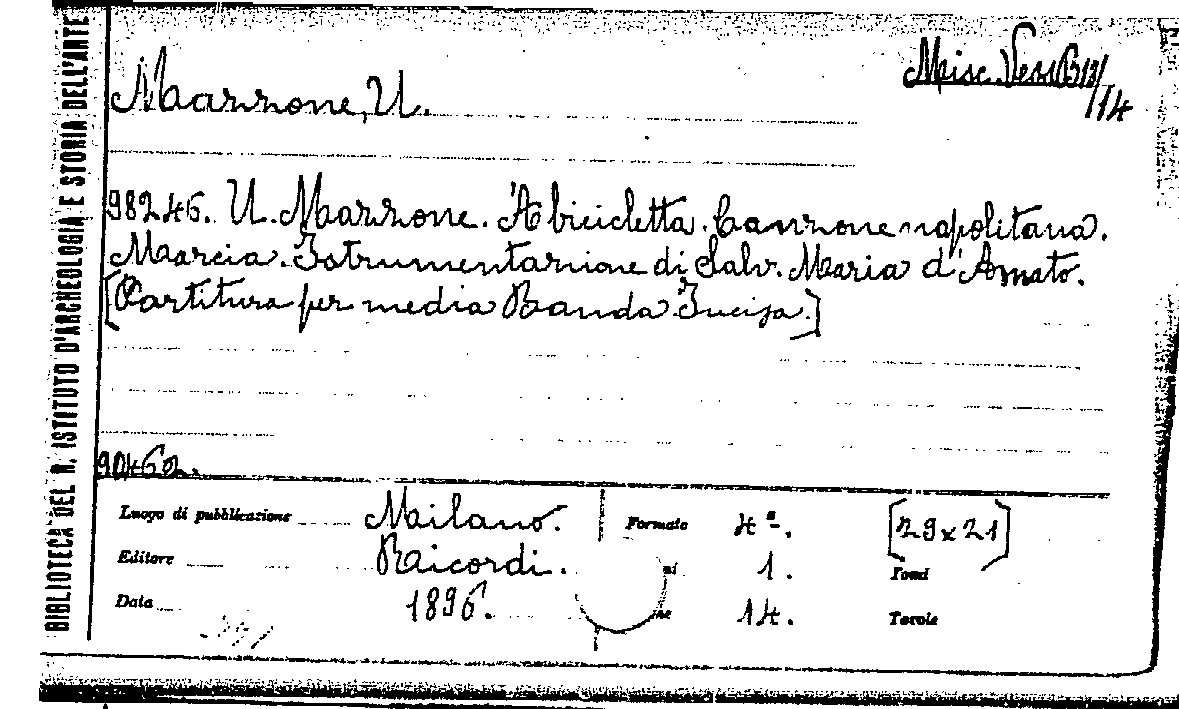 BIBLIOTECA DEL R. ISTITUTO D'ARCHEOLOGIA E STORIA DELL'ARTE
Misc. Vess. B 13/
/14
Marzone, U.
98246. U. Marzone. 'A bicicletta. Canzone napolitana.
Marcia. Istrumentazione di Salv. Maria d'Amato.
[Partitura per media Banda. Incisa.]
90462.
Luogo di pubblicazione Milano. Formato 4°. [29x21]
Editore Ricordi. 1. Fondi
Data 1896. 14. Tavole